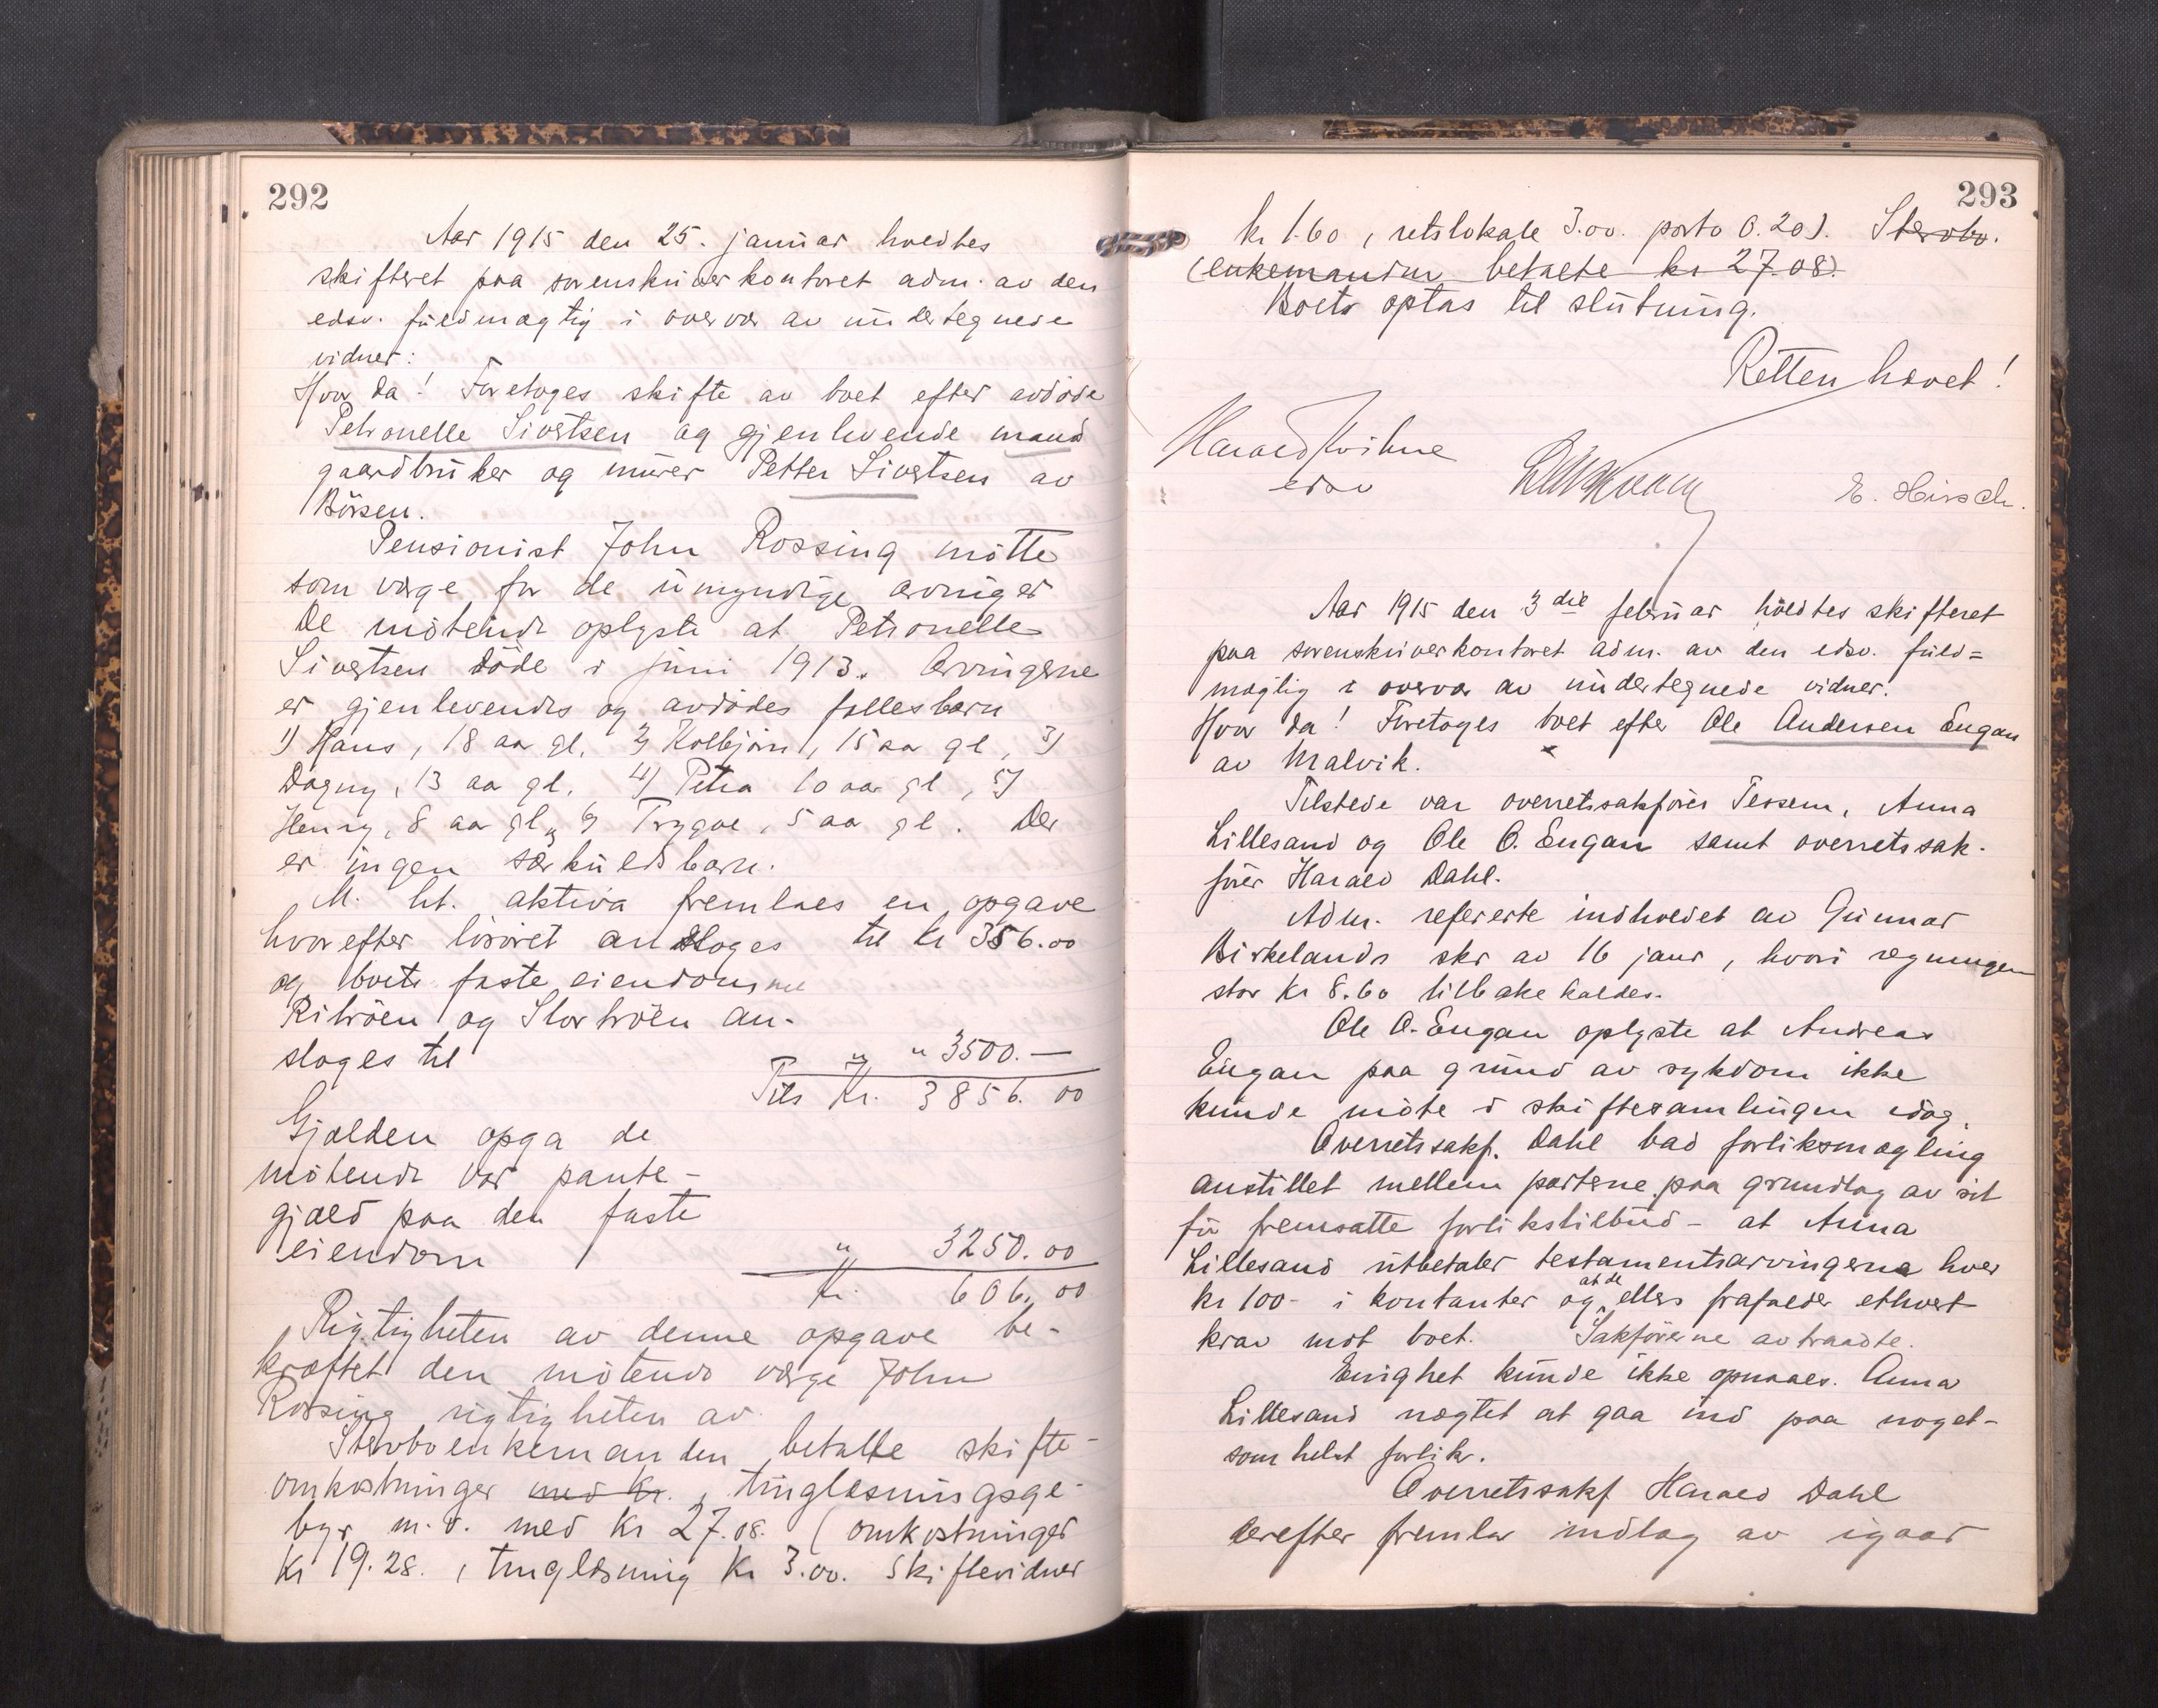 292
Aar 1915 den 25. januar holdtes
skifteret paa sorenskriverkontoret adm. av den
edsv. fuldmægtig i overvær av undertegnede
vidner:
Hvor da! Foretoges skifte av boet efter avdøde
Petronelle Sivertsen og gjenlevende mand
gaardbruker og murer Petter Sivertsen av
Börsen.
Pensionist John Rossing mötte
som værge for de umyndige arvinger
De mötende oplyste at Petronelle
Sivertsen döde i juni 1913. Arvingerne
er gjenlevendes og avdödes fællesbarn
1) Hans, 18 aar gl. 2) Kolbjörn, 15 aar gl, 3)
Dagny, 13 aar gl. 4) Petra 10 aar gl, 5)
Henry, 8 aar gl og 6) Trygve, 5 aar gl. Der
er ingen særkuldsbarn.
M. ht. aktiva fremlaes en opgave
hvorefter lösöret ansloges til kr 356.00
og boets faste eiendomme
Riböen og Storhöen an-
sloges til " " 3500.—
Tils Kr. 3856.00
Gjælden opga de
mötende var pante-
gjæld paa den faste
eiendom " 3250.00
Kr. 606.00
Rigtigheten av denne opgave be-
kræftet den mötende værge John
Rossing rigtigheten av
Stervboenkemanden betalte skifte-
omkostninger med kr., tinglæsningsge-
byr m.v. med Kr 27.08. (omkostninger
Kr 19.28., tinglæsning Kr 3.00. Skiftevidner
293
kr 1.60, retslokale 3.00. porto 0.20). Stervbo.
(enkemanden betalte kr 27.08).
Boets optas til slutning.
Retten hævet!
Harald Kvihne
edsv
E. Hirsch.
Aar 1915 den 3die februar holdtes skifteret
paa sorenskriverkontoret adm. av den edsv. fuld=
mægtig i overvær av undertegnede vidner.
Hvor da! Foretoges boet efter Ole Andersen Engan
av Malvik.
Tilstede var overretssakförer Tessem, Anna
Lillesand og Ole O. Engan samt overretssak-
förer Harald Dahl.
Adm. refererte indholdet av Gunnar
Birkelands skr av 16 janr, hvori regningen
stor kr 8.60 tilbakekaldes.
Ole O. Engan oplyste at Andreas
Engan paa grund av sykdom ikke
kunde möte i skiftesamlingen idag.
Overretssakf. Dahl bad forliksmægling
anstillet mellem parterne paa grundlag av sit
för fremsatte forlikstilbud - at Anna
Lillesand utbetaler testamentsarvingerne hver
kr 100- i kontanter og at de ellers frafalder ethvert
krav mot boet. Sakförerne avtraadte.
Enighet kunde ikke opnaaes. Anna
Lillesand nægtet at gaa ind paa noget-
somhelst forlik.
Overretssakf Harald Dahl
derefter fremla indlæg av igaar